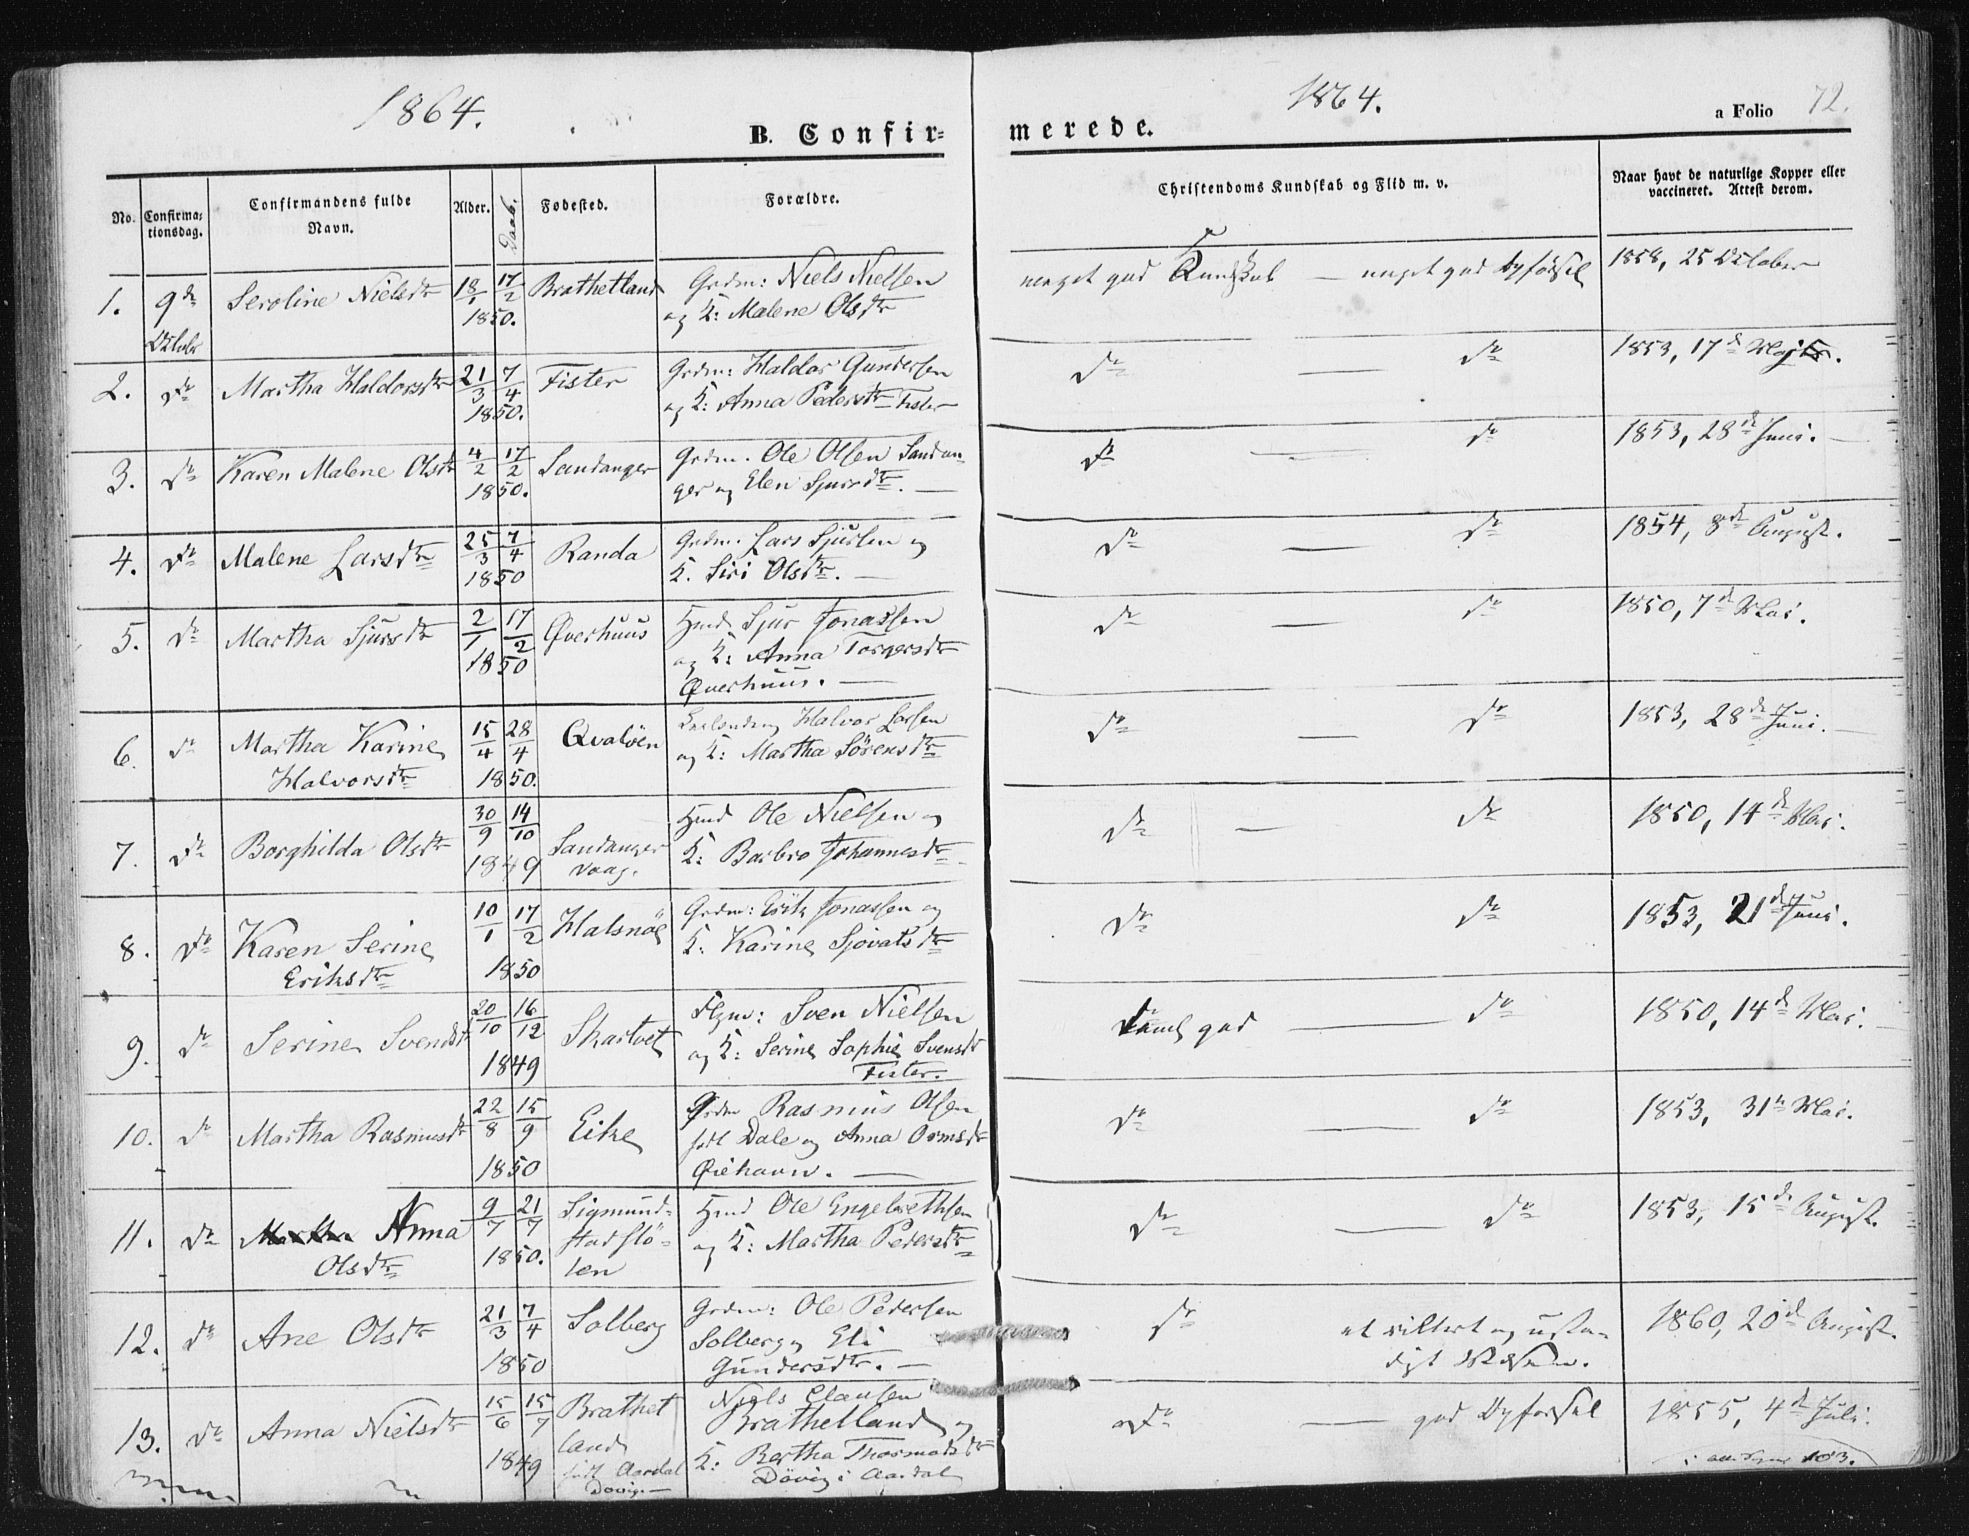 1864.
1864.
72.
B. Confir=
merede.
a Folio
No.
Confirma=
tionsdag.
Confirmandens fulde
Navn.
Alder.
Daab.
Fødested.
Forældre.
Christendoms Kundskab og Flid m. v.
Naar havt de naturlige Kopper eller
vaccineret. Attest derom.
1. 9de Seroline Nielsdtr 18/1 17/2 Brathetland Grdm: Niels Nielsen meget god Kundskab — meget god Opførsel 1858, 25 October
October 1850. og K: Malene Olsdtr
2. do Martha Haldorsdtr 21/3 7/4 Fister Grdm: Haldor Gundersen do — do 1853, 17de Mai.
1850. og K: Anna Pedersdtr Fister
3. do Karen Malene Olsdtr 4/2 17/2 Sandanger Grdm. Ole Olsen Sandan- do — do 1853, 28de Juni. —
1850. ger og Elen Sjursdtr. —
4. do Malene Larsdtr 25/3 7/4 Randa Grdm. Lars Sjursen og do — do 1854, 8de August.
1850 K. Siri Olsdtr. —
5. do Martha Sjursdtr 2/1 17/2 Øverhuus Hmd Sjur Jonassen do — do 1850, 7de Mai.
1850 og K: Anna Torgersdtr
Øverhuus. —
6. do Martha Karine 15/4 28/4 Qvaløen Halvor Larsen do — do 1853, 28de Juni. —
Halvorsdtr 1850. og K: Martha Sørensdtr
7. do Borghilda Olsdtr 30/9 14/10 Sandanger Hmd Ole Nielsen og do — do 1850, 14de Mai.
1849 vaag. K: Barbro Johannesdtr
8. do Karen Serine 10/1 17/2 Halsnøe Grdm: Erik Jonassen og do do 1853, 21de Juni.
Eriksdtr 1850 K: Karine Sjovatsdtr
9. do Serine Svendsdtr 20/10 16/12 Skartvet Sven Nielsen Taml. god — do 1850, 14de Mai.
1849 og K: Serine Sophie Svensdtr
Fister.
10. do Martha Rasmusdtr 22/8 15/9 Eike Grdm Rasmus Olsen do do 1853, 31te Mai.
1850 født Dale og Anna Ormsdtr
Øiehavn. —
11. do Anna 9/7 21/7 Sigmund= Hmd Ole Engelbrethsen do — do 1853, 15de August.
Olsdtr 1850. stadslø= og K: Martha Pedersdtr
len
12. do Ane Olsdtr 21/3 7/4 Solberg Grdm: Ole Pedersen do et vilter og usta= 1860, 20de August.
1850 Solberg og Eli digt Væsen.
Gundersdtr. —
13. do Anna Nielsdtr 15/6 15/7 Brathet Niels Clausen do — god Opførsel 1855, 4de Juli.
land Brathetland og
1849 født Aardal K: Bertha Thormodsdtr 103.
Døvig. — Døvig i Aardal